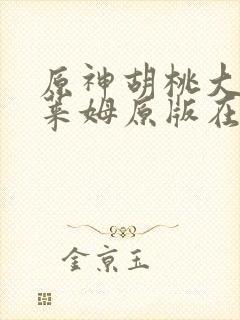 原神胡桃大
莱姆原版在
金京玉